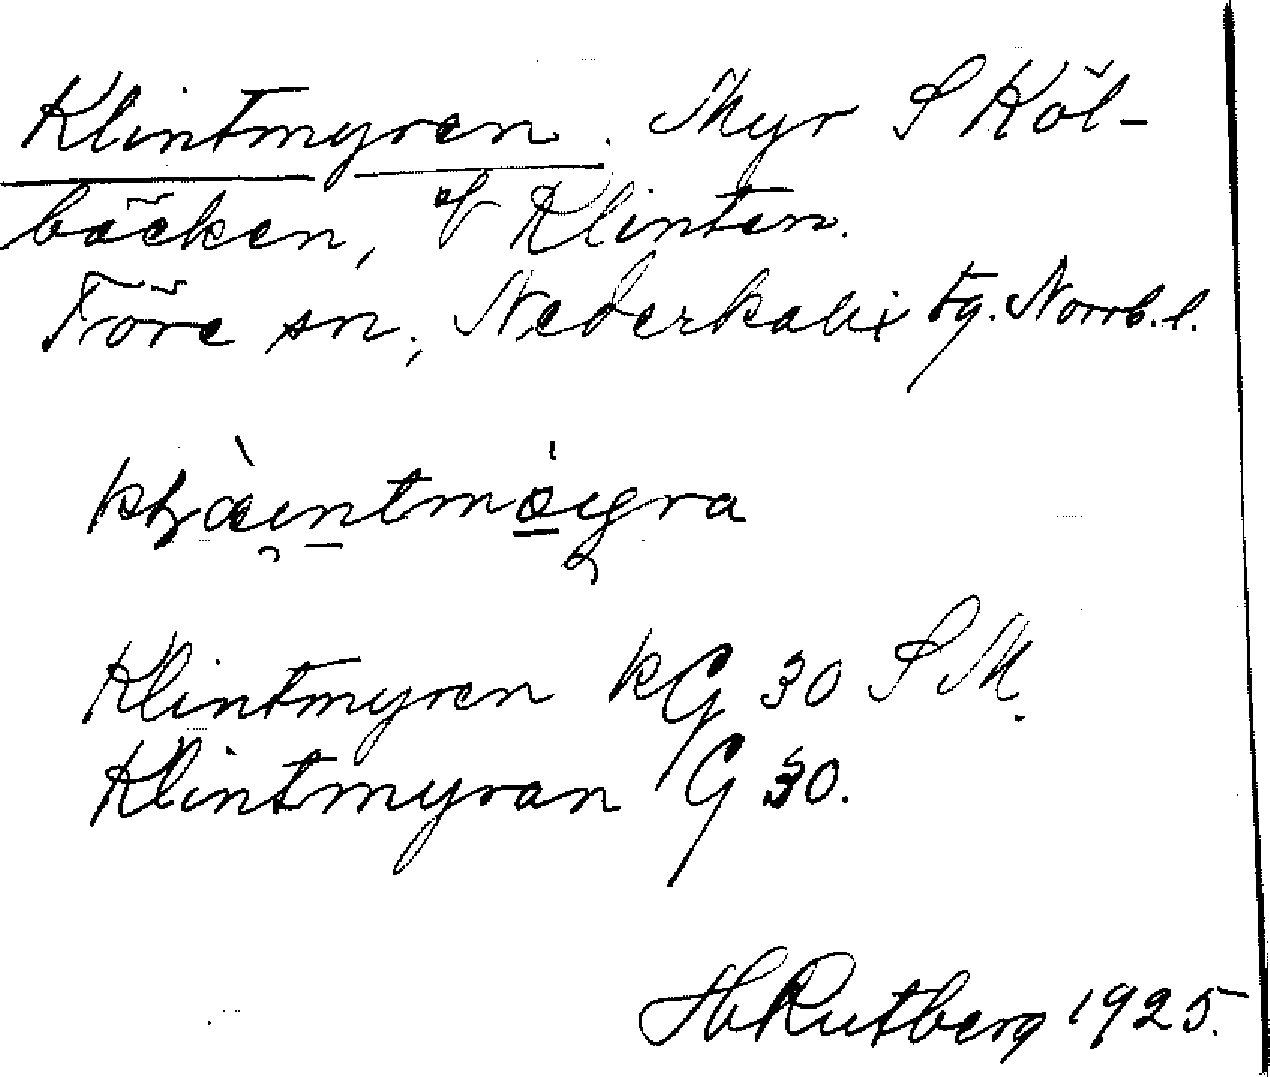 Klintmyren. Myr S Köl-
bäcken, of Klinten.
Töre sn., Nederkalix tg. Norrb. l.
Klintmyren kG 30 S M.
Klintmyran G 30.
H Rutberg 1925.